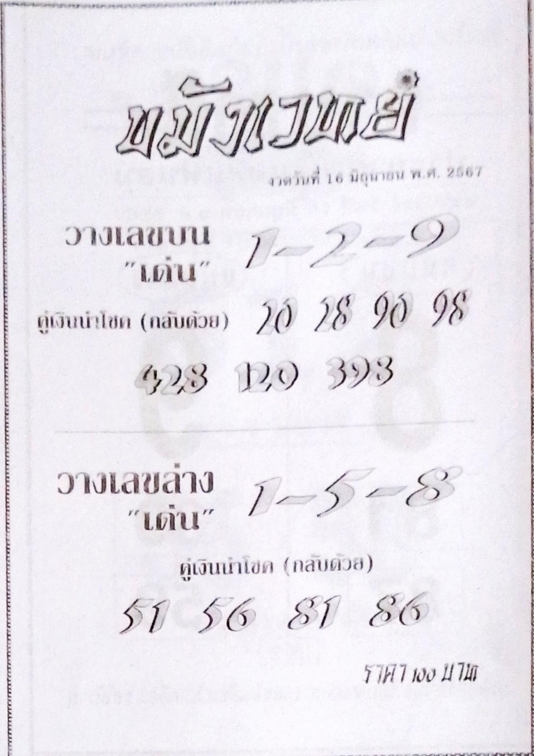 ขมังเวทย์
งวดวันที่ 16 มิถุนายน พ.ศ. 2567
วางเลขบน 1-2-9
"เด่น"
คู่เงินนำโชค (กลับด้วย) 20 28 90 98
428 120 398
วางเลขล่าง 1-5-8
"เด่น"
คู่เงินนำโชค (กลับด้วย)
51 56 81 86
ราคา 100 บาท